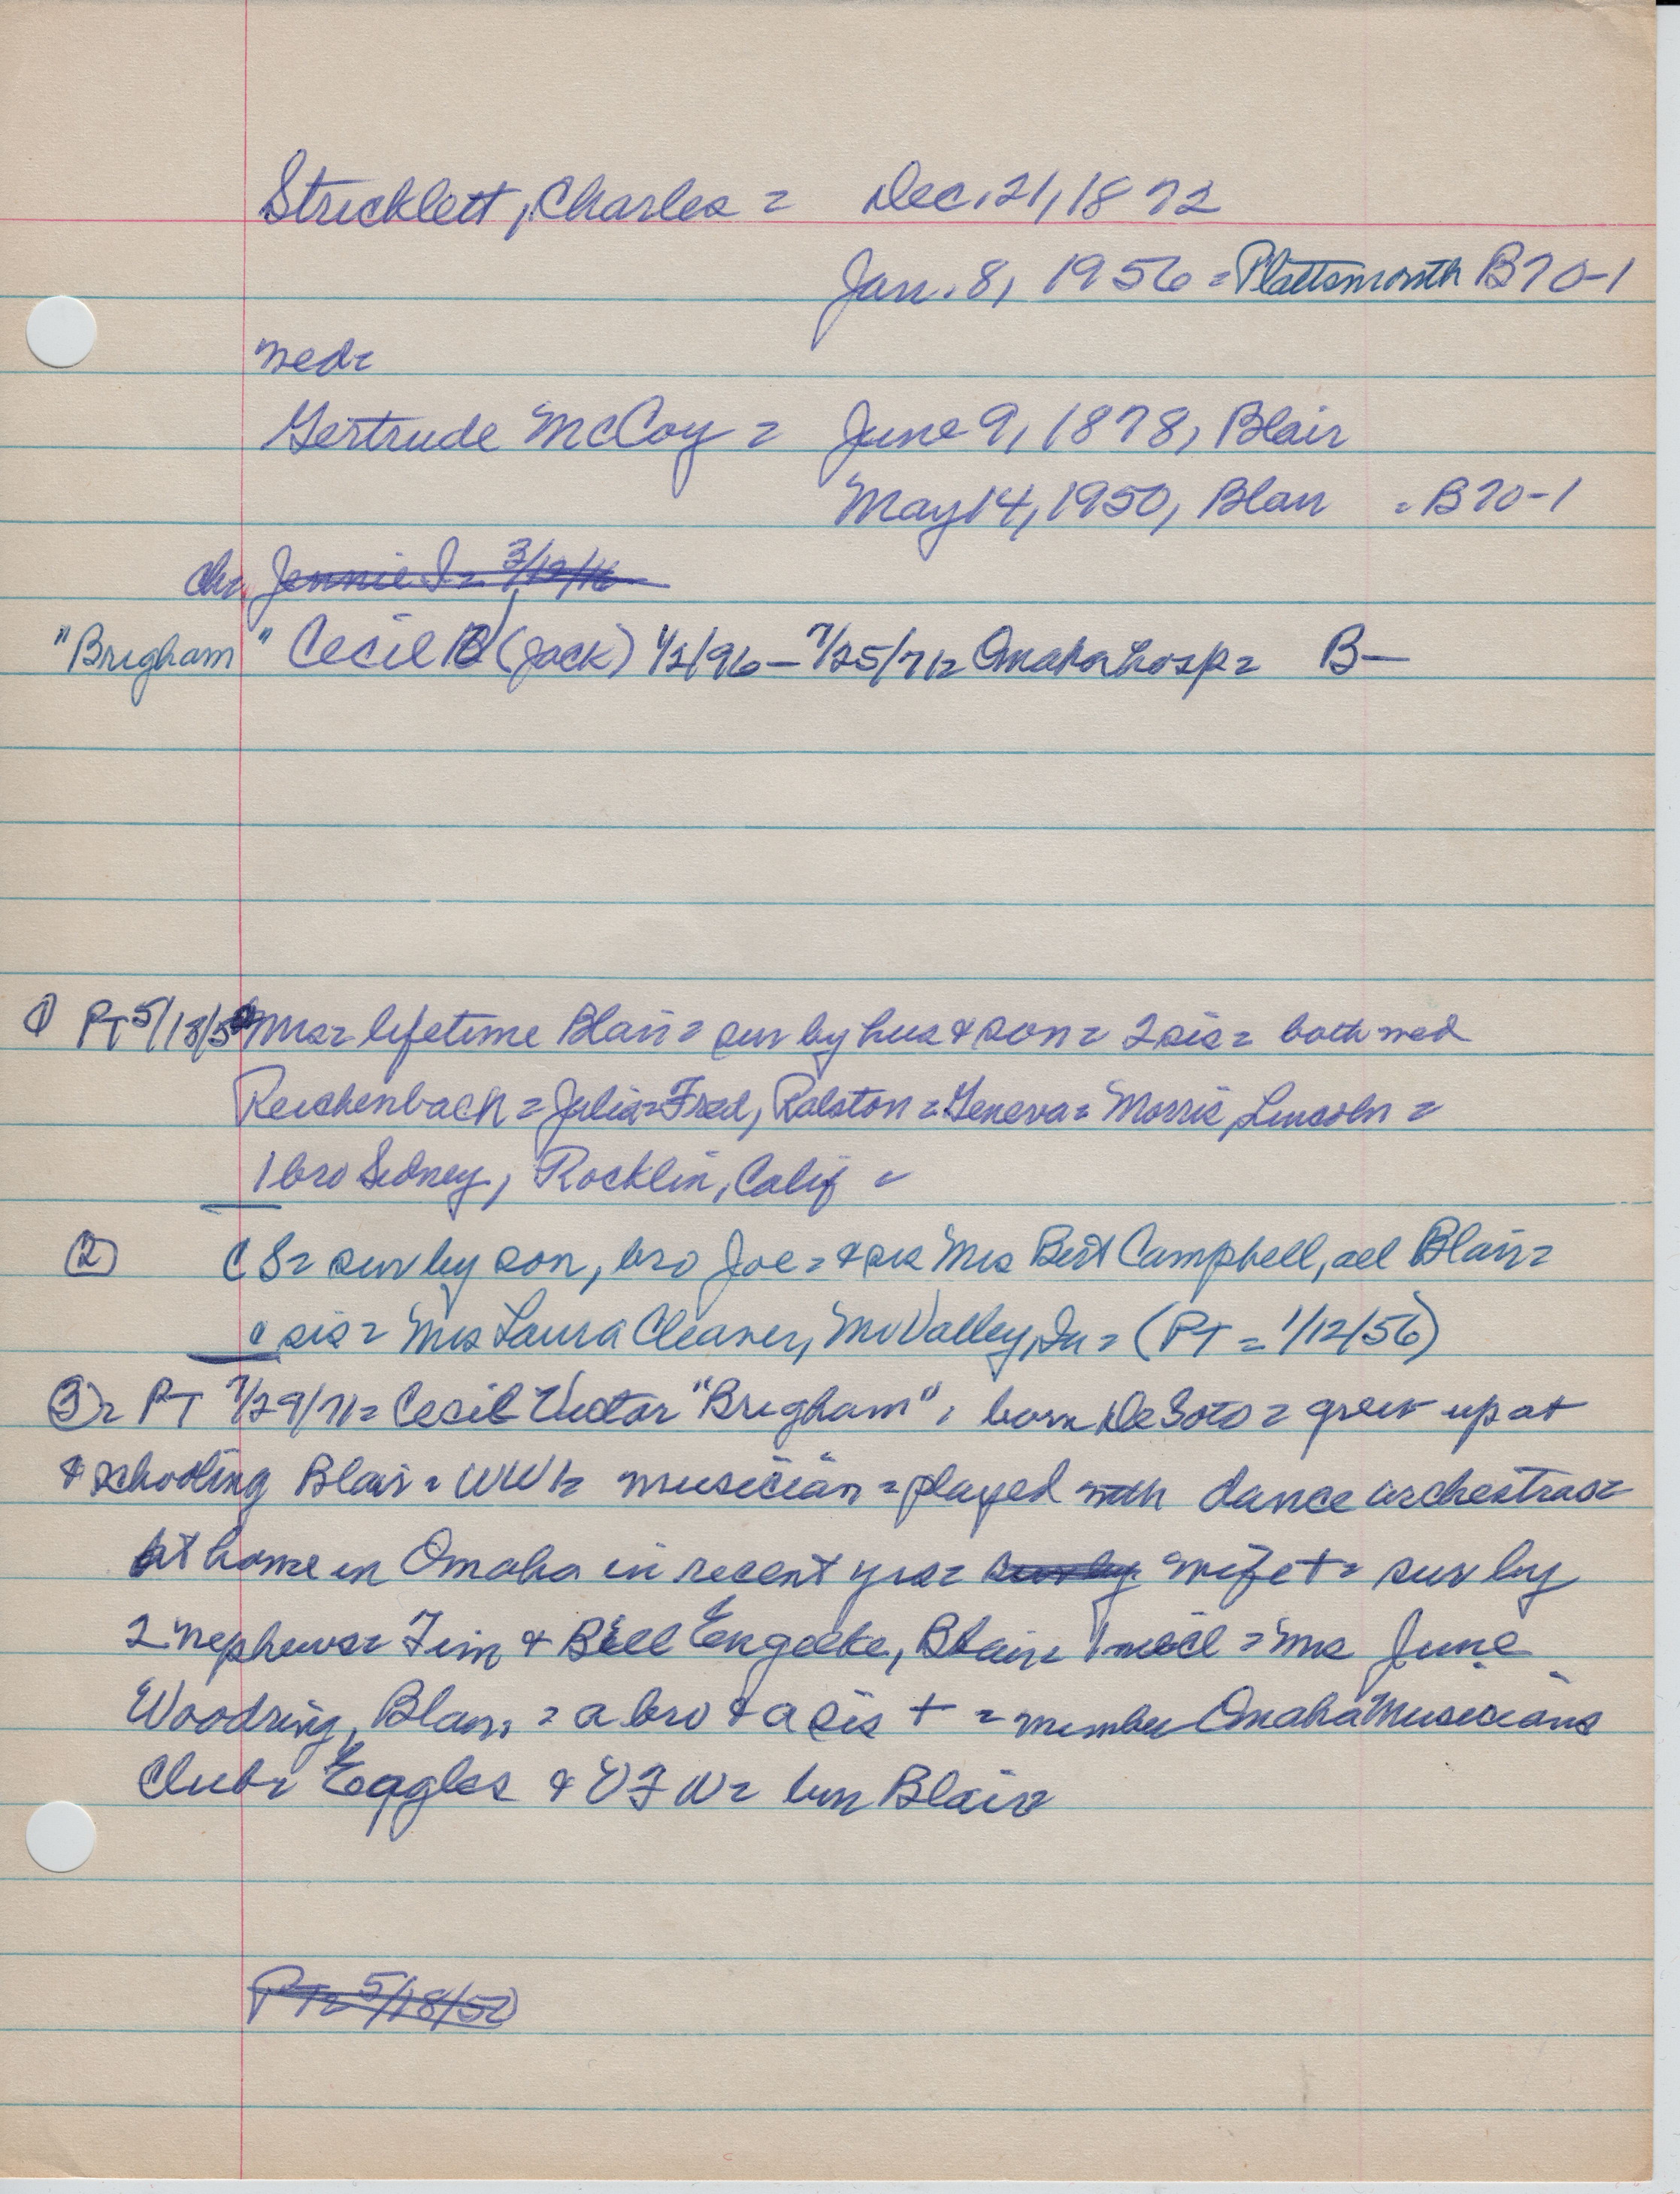 Stricklett, Charles = Dec. 21, 1872
Jan. 8, 1956 = Plattsmouth B70-1
med=
Gertrude McCoy = June 9, 1878, Blair
May 14, 1950, Blair = B70-1
ch= Jennie I= 3/12/16
"Brigham" Cecil (Jack) 1/2/96 – 7/25/71= Omaha hosp= B—
① PT 5/18/50 Mrs= lifetime Blair= sur by hus & son= 2 sis= both med
Reichenbach = Julia=Fred, Ralston = Geneva= Morris, Lincoln =
1 bro Sidney, Rocklin, Calif =
② CS= sur by son, bro Joe= & sis Mrs Bert Campbell, all Blair=
sis= Mrs Laura Cleaver, Mo Valley, Ia= (PT = 1/12/56)
③= PT 7/29/71= Cecil Victor "Brigham", born DeSoto = grew up at
& schooling Blair= WW1= musician = played with dance orchestras=
at home in Omaha in recent yrs= sur by wife += sur by
2 nephews= Tim & Bill Engelke, Blair= 1 niece = Mrs June
Woodring, Blair, = a bro & a sis + = member Omaha Musicians
Club= Eagles & VFW= bur Blair
PT= 5/18/50